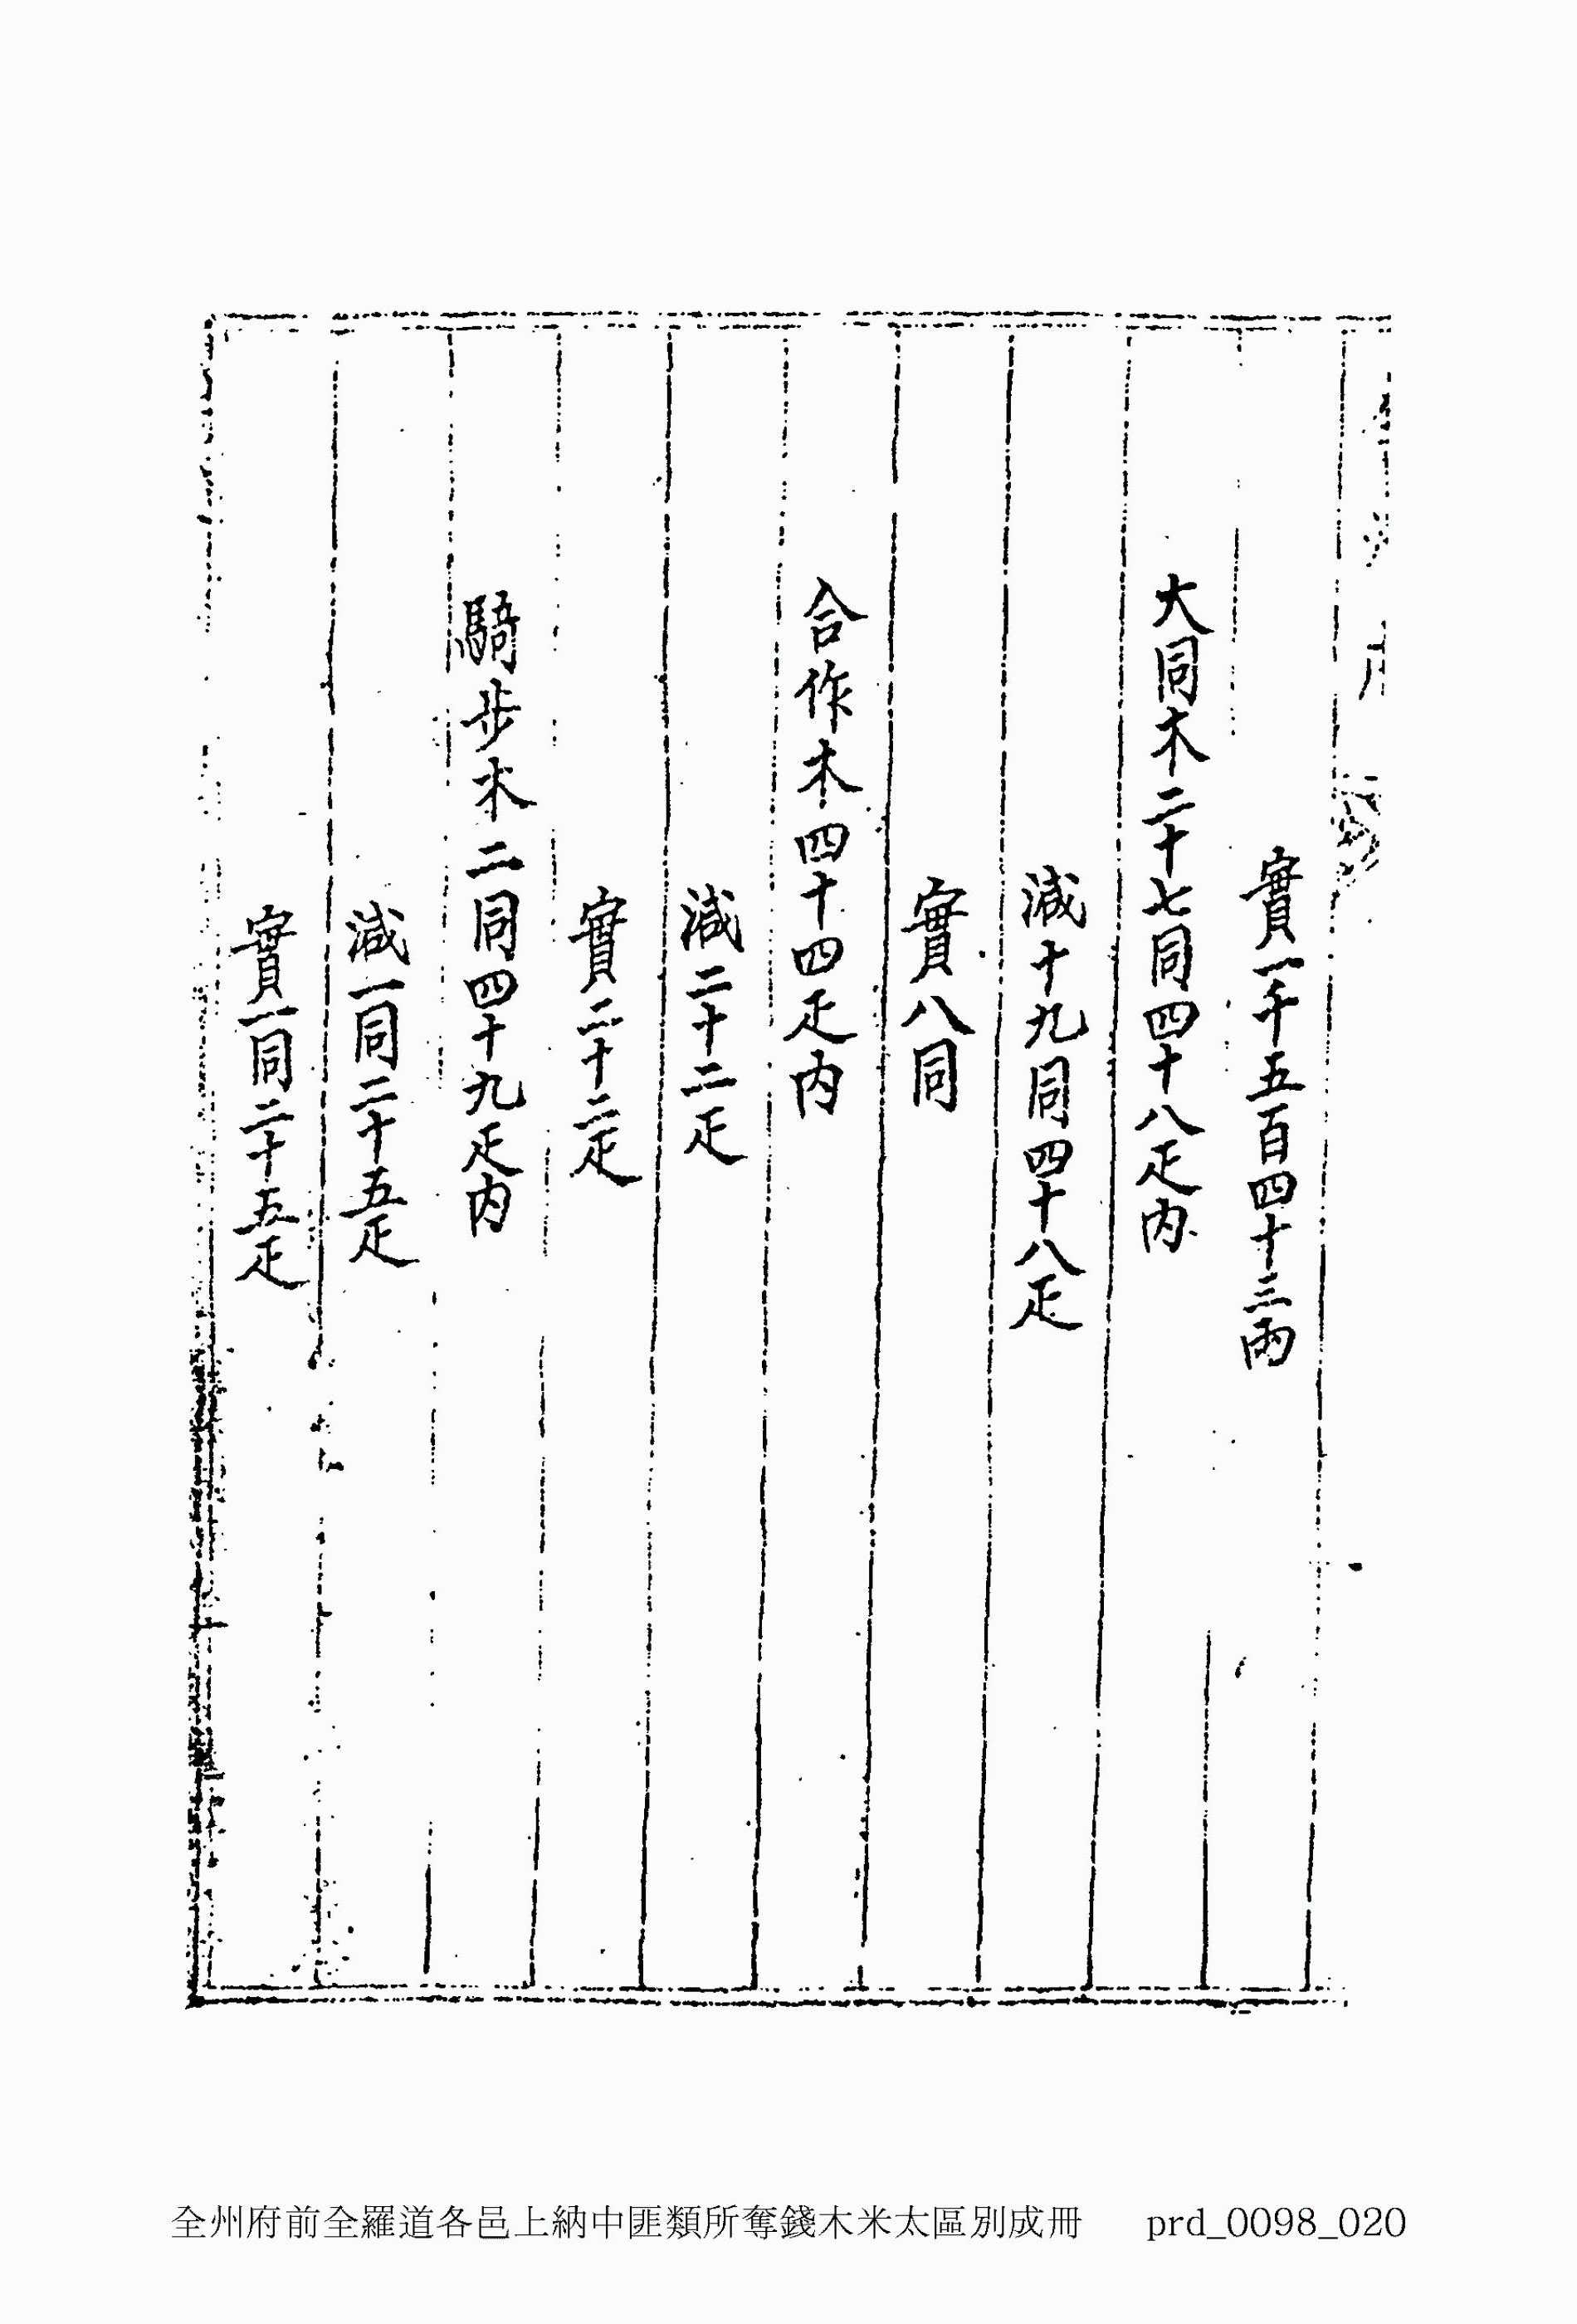 實一千五百四十三兩
大同木二十七同四十八疋内
減十九同四十八疋
實八同
合作木四十四疋内
減二十二疋
實二十二疋
騎步木二同四十九疋内
減一同二十五疋
實一同二十五疋
全州府前全羅道各邑上納中匪類所奪錢木米太區別成冊 prd_0098_020